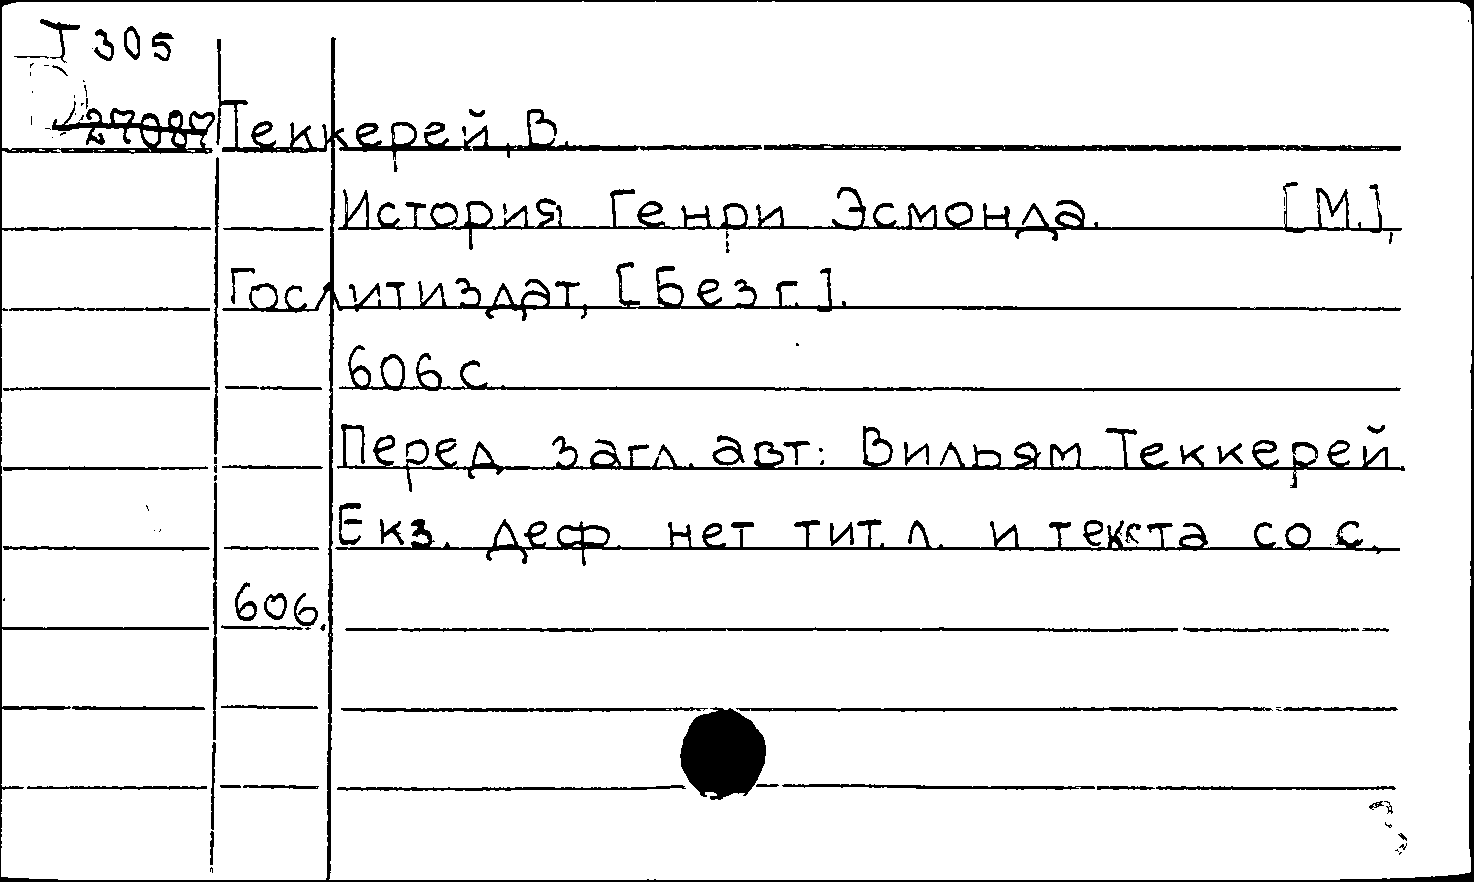 Т 305
27087 Теккерей, В.
История Генри Эсмонда. [М.],
Гослитиздат, [Без г.].
606 с.
Перед загл. авт: Вильям Теккерей.
Екз. деф. нет тит. л. и текста со с.
606.